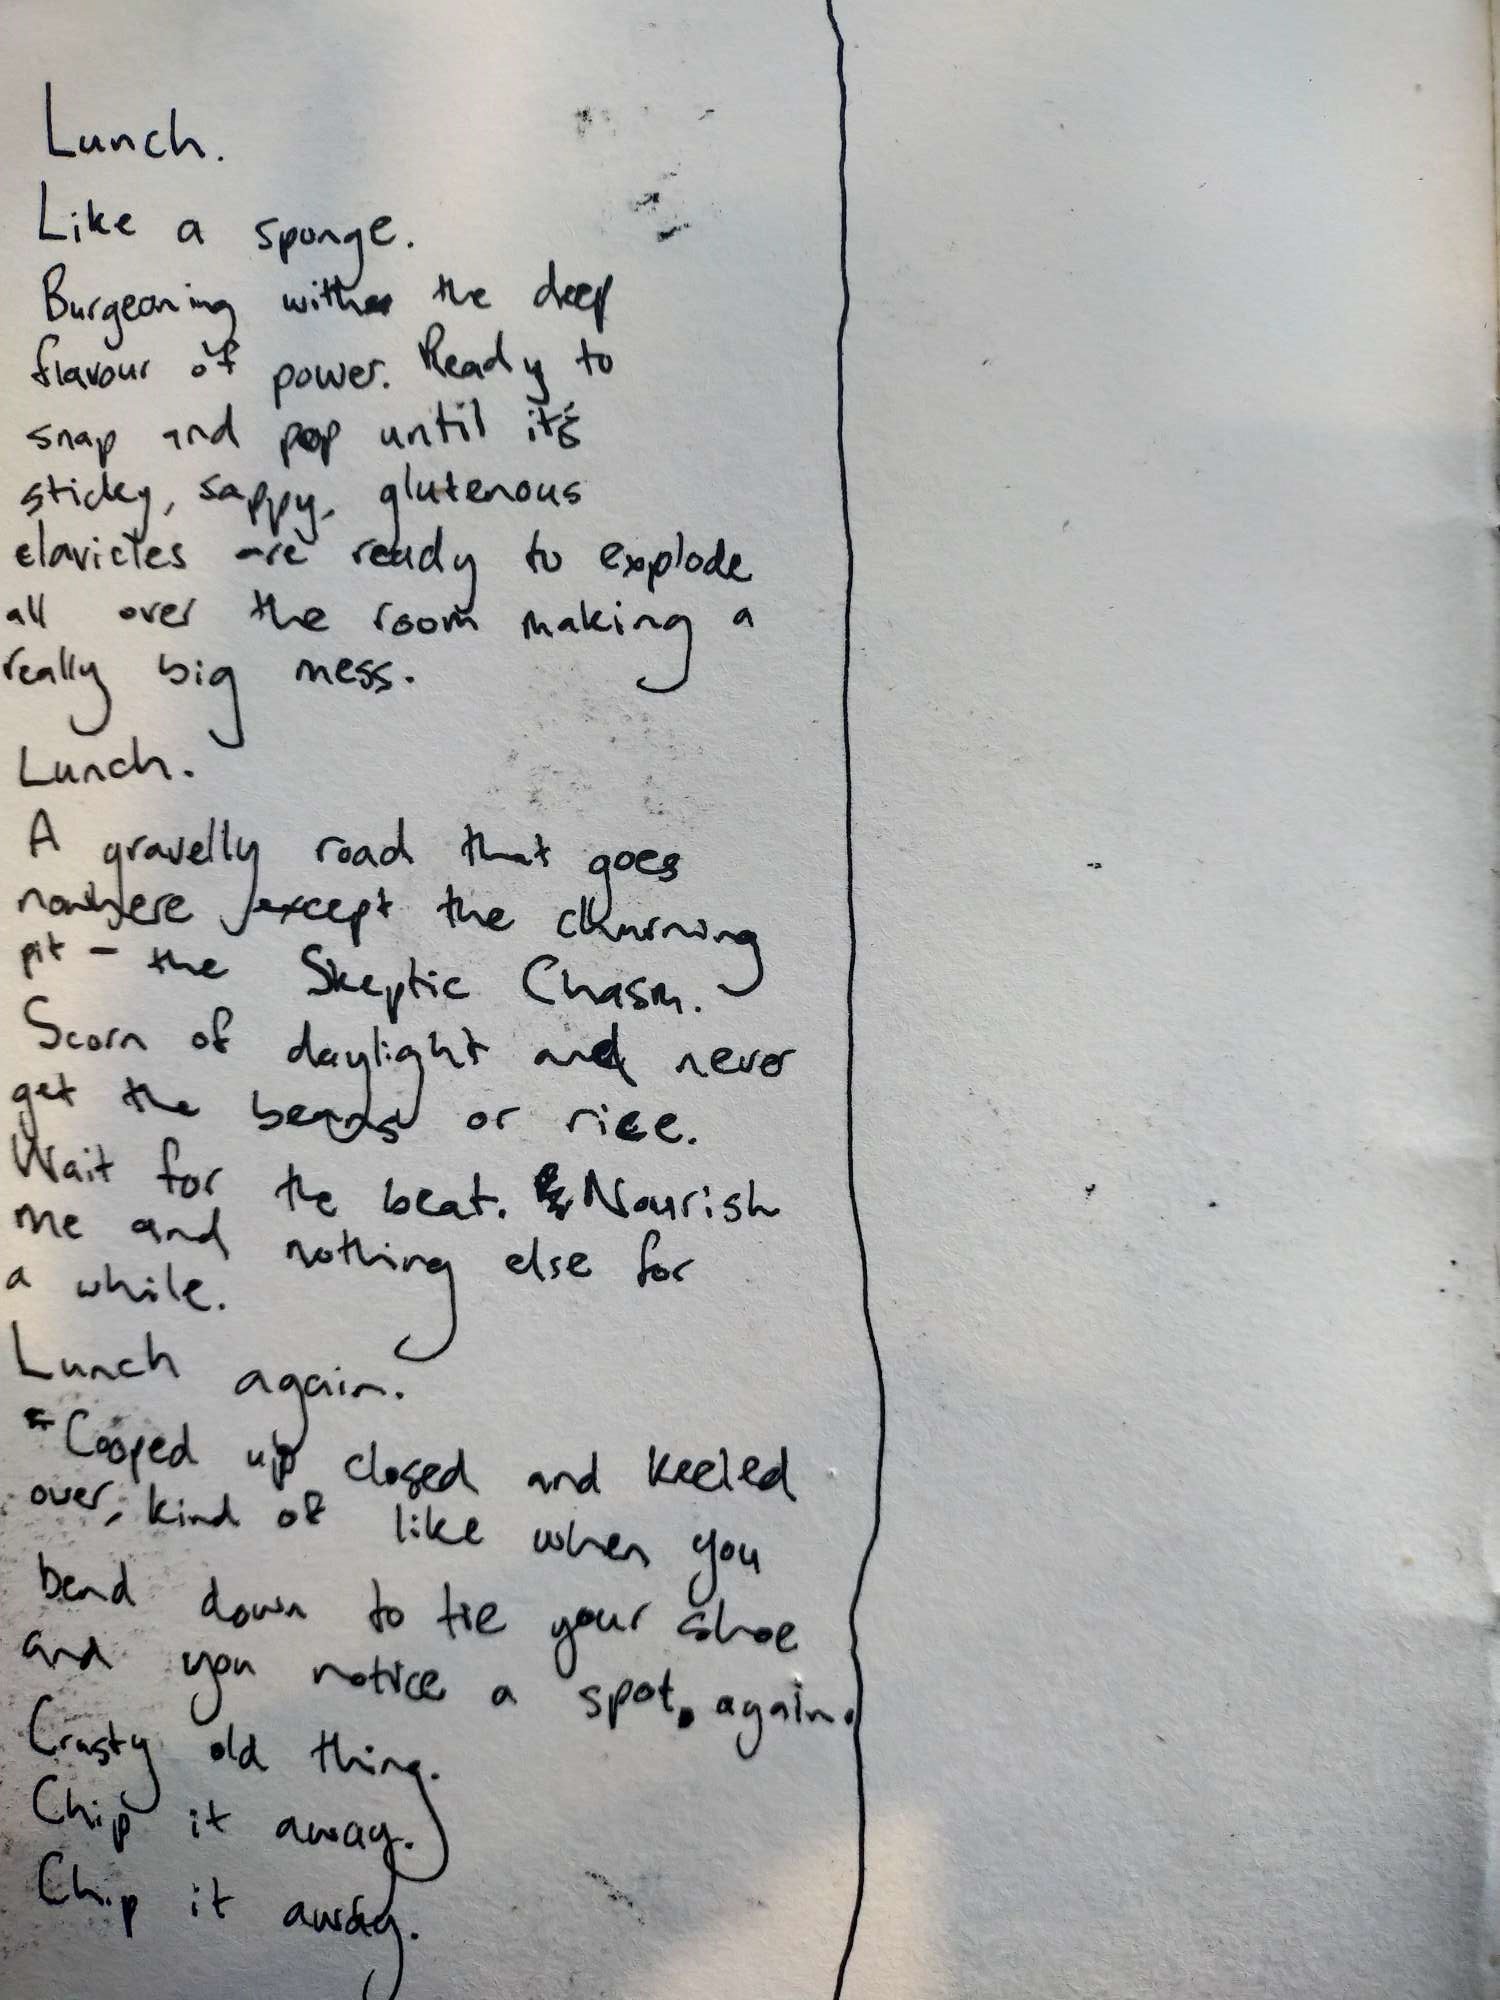 Lunch.
Like a sponge.
Burgeoning with the deep
flavour of power. Ready to
snap and pop until it's
sticky, sappy, glutenous
clavicles are ready to explode
all over the room making a
really big mess.
Lunch.
A gravelly road that goes
nowhere except the churning
pit - the Skeptic Chasm.
Scorn of daylight and never
get the beans or rice.
Wait for the beat. Nourish
me and nothing else for
a while.
Lunch again.
Cooped up closed and keeled
over, kind of like when you
bend down to tie your shoe
and you notice a spot, again.
Crusty old thing.
Chip it away.
Chip it away.